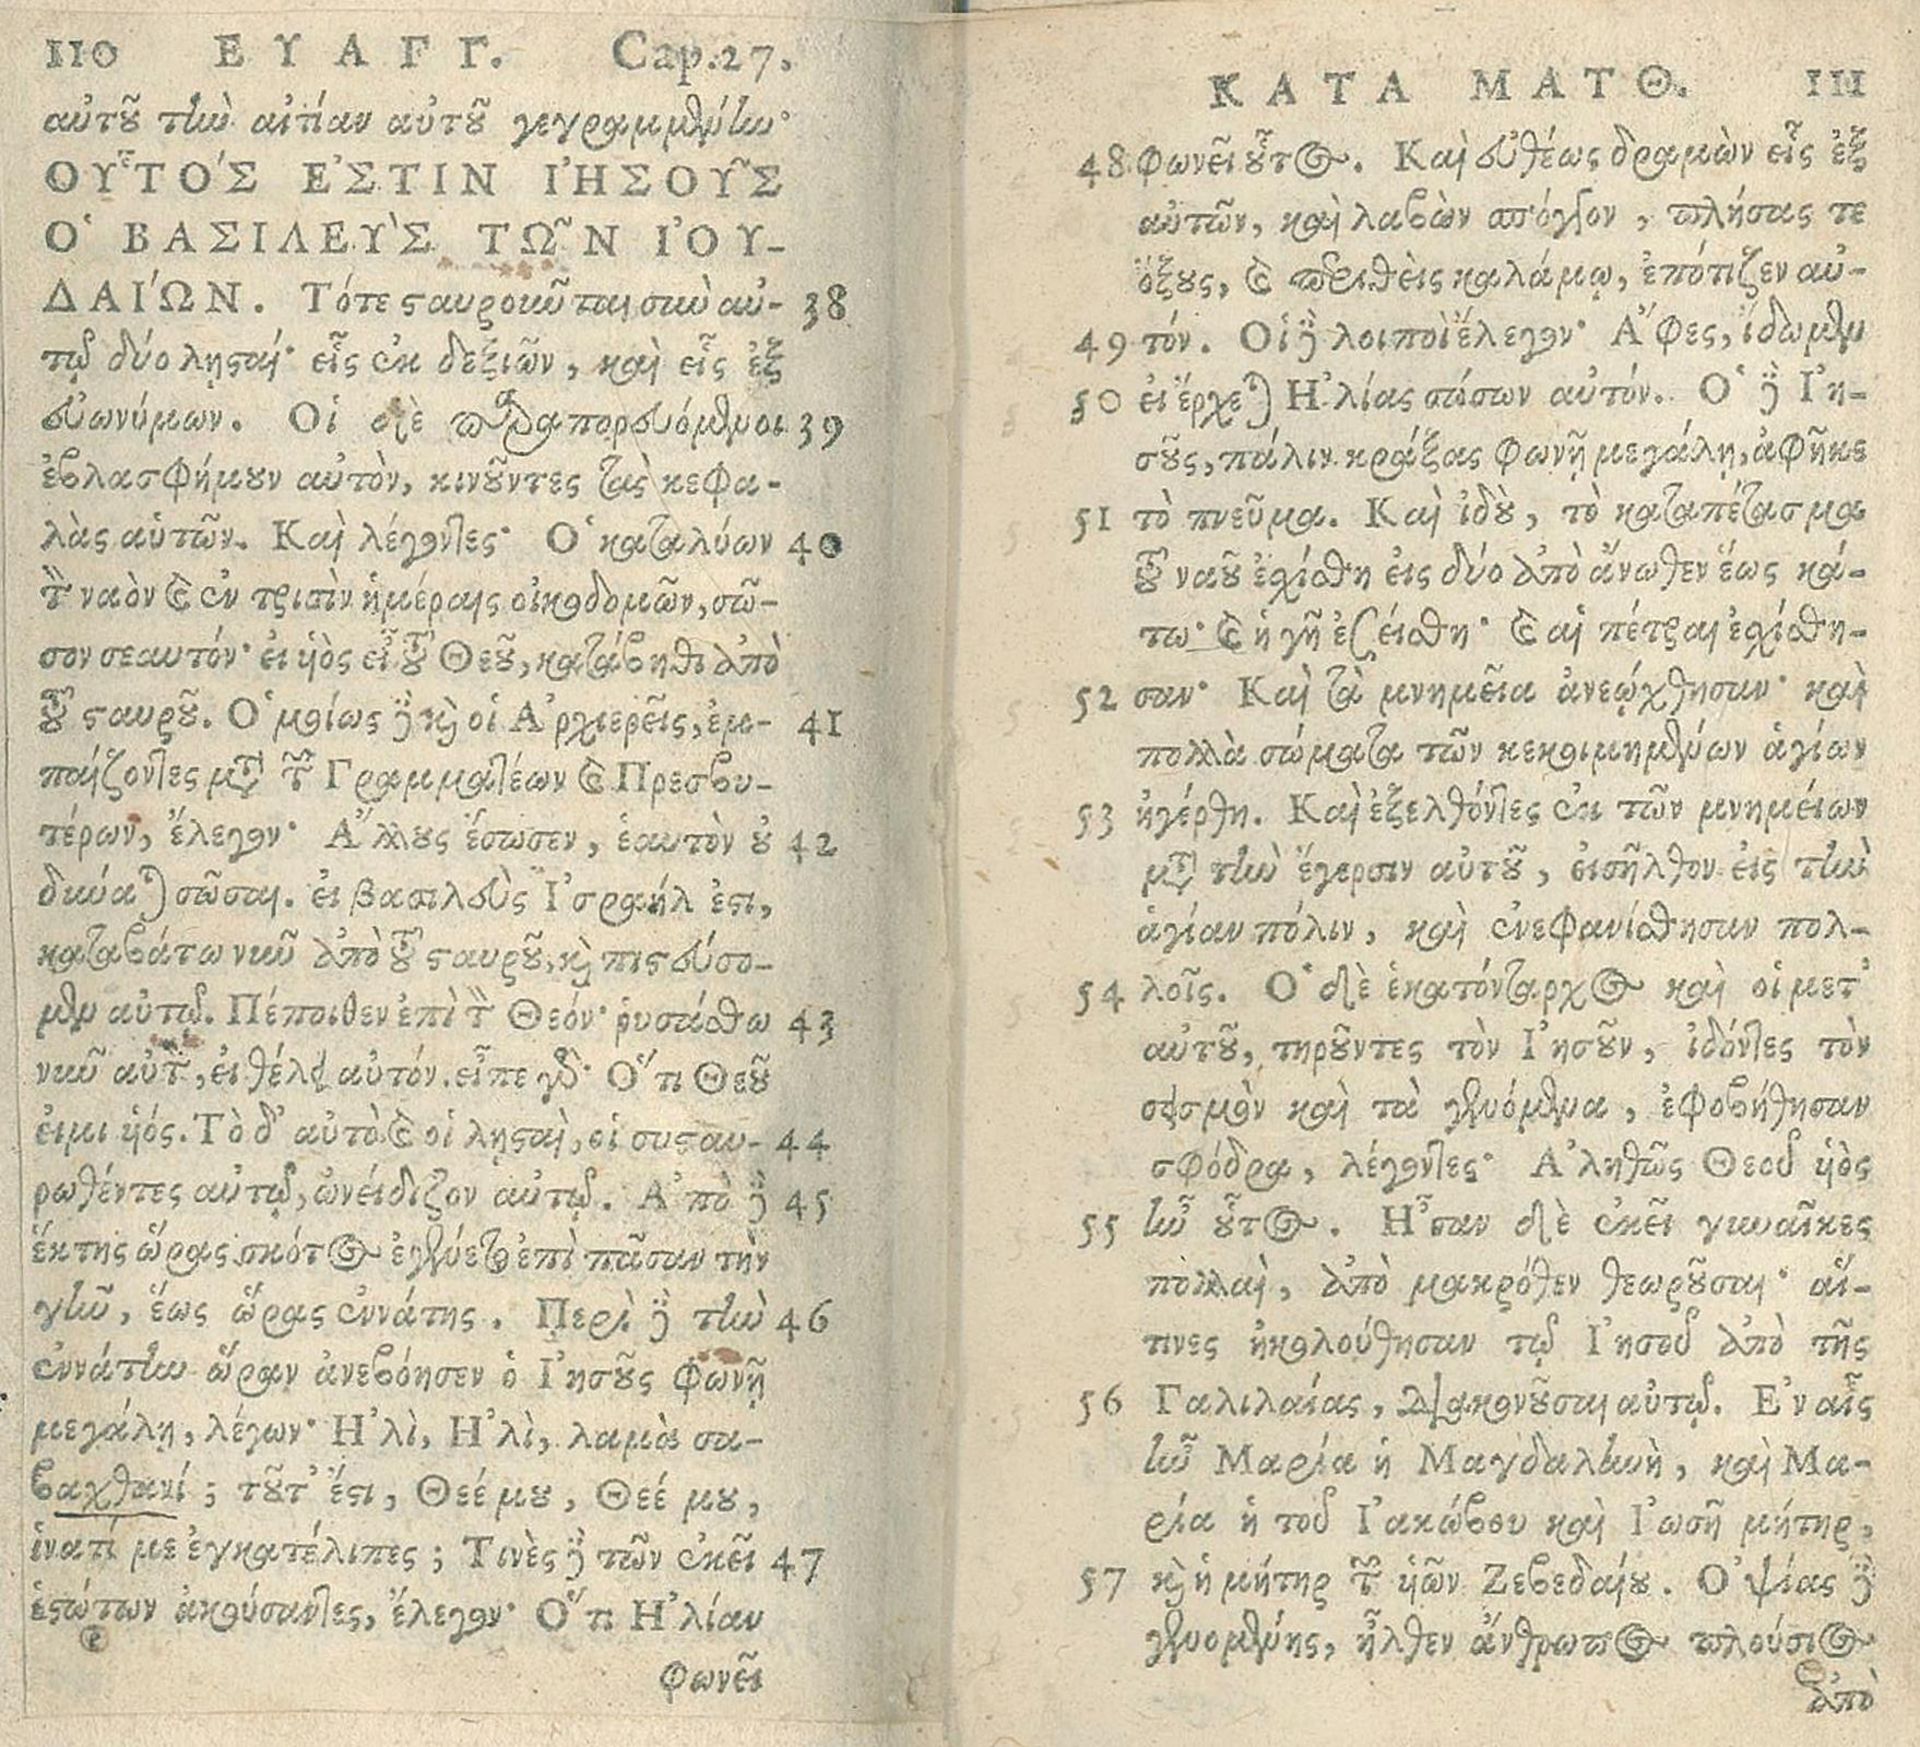 110 ΕΥΑΓΓ. Cap.27.
αὐτοῦ τὴν αἰτίαν αὐτοῦ γεγραμμένην·
ΟΥ͂ΤΟ´Σ Ε᾿ΣΤΙΝ Ι᾿ΗΣΟΥ͂Σ
Ο῾ ΒΑΣΙΛΕΥ`Σ ΤΩ͂Ν Ι᾿ΟΥ-
ΔΑΙ´ΩΝ. Τότε σταυροῦνται σὺν αὐ- 38
τῷ δύο λῃσταί· εἷς ἐκ δεξιῶν, καὶ εἷς ἐξ
εὐωνύμων. Οἱ δὲ παραπορευόμενοι 39
ἐβλασφήμουν αὐτὸν, κινοῦντες τὰς κεφα-
λὰς αὑτῶν. Καὶ λέγοντες· Ὁ καταλύων 40
τὸν ναὸν καὶ ἐν τρισὶν ἡμέραις οἰκοδομῶν, σῶ-
σον σεαυτόν· εἰ υἱὸς εἶ τοῦ Θεοῦ, κατάβηθι ἀπὸ
τοῦ σταυροῦ. Ὁμοίως δὲ καὶ οἱ Ἀρχιερεῖς, ἐμ- 41
παίζοντες μετὰ τῶν Γραμματέων καὶ Πρεσβυ-
τέρων, ἔλεγον· Ἄλλους ἔσωσεν, ἑαυτὸν οὐ 42
δύναται σῶσαι. εἰ βασιλεὺς Ἰσραήλ ἐστι,
καταβάτω νῦν ἀπὸ τοῦ σταυροῦ, καὶ πιστεύσο-
μεν αὐτῷ. Πέποιθεν ἐπὶ τὸν Θεόν· ῥυσάσθω 43
νῦν αὐτὸν, εἰ θέλει αὐτόν. εἶπε γὰρ· Ὅτι Θεοῦ
εἰμι υἱός. Τὸ δ' αὐτὸ καὶ οἱ λῃσταὶ, οἱ συσταυ- 44
ρωθέντες αὐτῷ, ὠνείδιζον αὐτῷ. Ἀπὸ δὲ 45
ἕκτης ὥρας σκότος ἐγένετο ἐπὶ πᾶσαν τὴν
γῆν, ἕως ὥρας ἐννάτης. Περὶ δὲ τὴν 46
ἐννάτην ὥραν ἀνεβόησεν ὁ Ἰησοῦς φωνῇ
μεγάλῃ, λέγων· Ἠλὶ, Ἠλὶ, λαμὰ σα-
βαχθανί; τοῦτ' ἔστι, Θεέ μου, Θεέ μου,
ἱνατί με ἐγκατέλιπες; Τινὲς δὲ τῶν ἐκεῖ 47
ἑστώτων ἀκούσαντες, ἔλεγον· Ὅτι Ἠλίαν
φωνεῖ
ΚΑΤΑ ΜΑΤΘ. 111
48 φωνεῖ οὗτος. Καὶ εὐθέως δραμὼν εἷς ἐξ
αὐτῶν, καὶ λαβὼν σπόγγον, πλήσας τε
ὄξους, καὶ περιθεὶς καλάμῳ, ἐπότιζεν αὐ-
49 τόν. Οἱ δὲ λοιποὶ ἔλεγον· Ἄφες, ἴδωμεν
50 εἰ ἔρχεται Ἠλίας σώσων αὐτόν. Ὁ δὲ Ἰη-
σοῦς, πάλιν κράξας φωνῇ μεγάλῃ, ἀφῆκε
51 τὸ πνεῦμα. Καὶ ἰδοὺ, τὸ καταπέτασμα
τοῦ ναοῦ ἐσχίσθη εἰς δύο ἀπὸ ἄνωθεν ἕως κά-
τω· καὶ ἡ γῆ ἐσείσθη· καὶ αἱ πέτραι ἐσχίσθη-
52 σαν· Καὶ τὰ μνημεῖα ἀνεῴχθησαν· καὶ
πολλὰ σώματα τῶν κεκοιμημένων ἁγίων
53 ἠγέρθη. Καὶ ἐξελθόντες ἐκ τῶν μνημείων
μετὰ τὴν ἔγερσιν αὐτοῦ, εἰσῆλθον εἰς τὴν
ἁγίαν πόλιν, καὶ ἐνεφανίσθησαν πολ-
54 λοῖς. Ὁ δὲ ἑκατόνταρχος καὶ οἱ μετ'
αὐτοῦ, τηροῦντες τὸν Ἰησοῦν, ἰδόντες τὸν
σεισμὸν καὶ τὰ γενόμενα, ἐφοβήθησαν
σφόδρα, λέγοντες· Ἀληθῶς Θεοῦ υἱὸς
55 ἦν οὗτος. Ἦσαν δὲ ἐκεῖ γυναῖκες
πολλαὶ, ἀπὸ μακρόθεν θεωροῦσαι· αἵ-
τινες ἠκολούθησαν τῷ Ἰησοῦ ἀπὸ τῆς
56 Γαλιλαίας, διακονοῦσαι αὐτῷ. Ἐν αἷς
ἦν Μαρία ἡ Μαγδαληνὴ, καὶ Μα-
ρία ἡ τοῦ Ἰακώβου καὶ Ἰωσῆ μήτηρ,
57 καὶ ἡ μήτηρ τῶν υἱῶν Ζεβεδαίου. Ὀψίας δὲ
γενομένης, ἦλθεν ἄνθρωπος πλούσιος
ἀπὸ